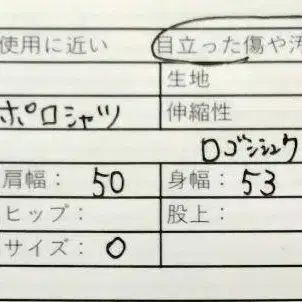 使用に近い 目立った傷や汚
生地
ポロシャツ 伸縮性
ロゴシシュウ
肩幅： 50 身幅： 53
ヒップ： 股上：
サイズ： O